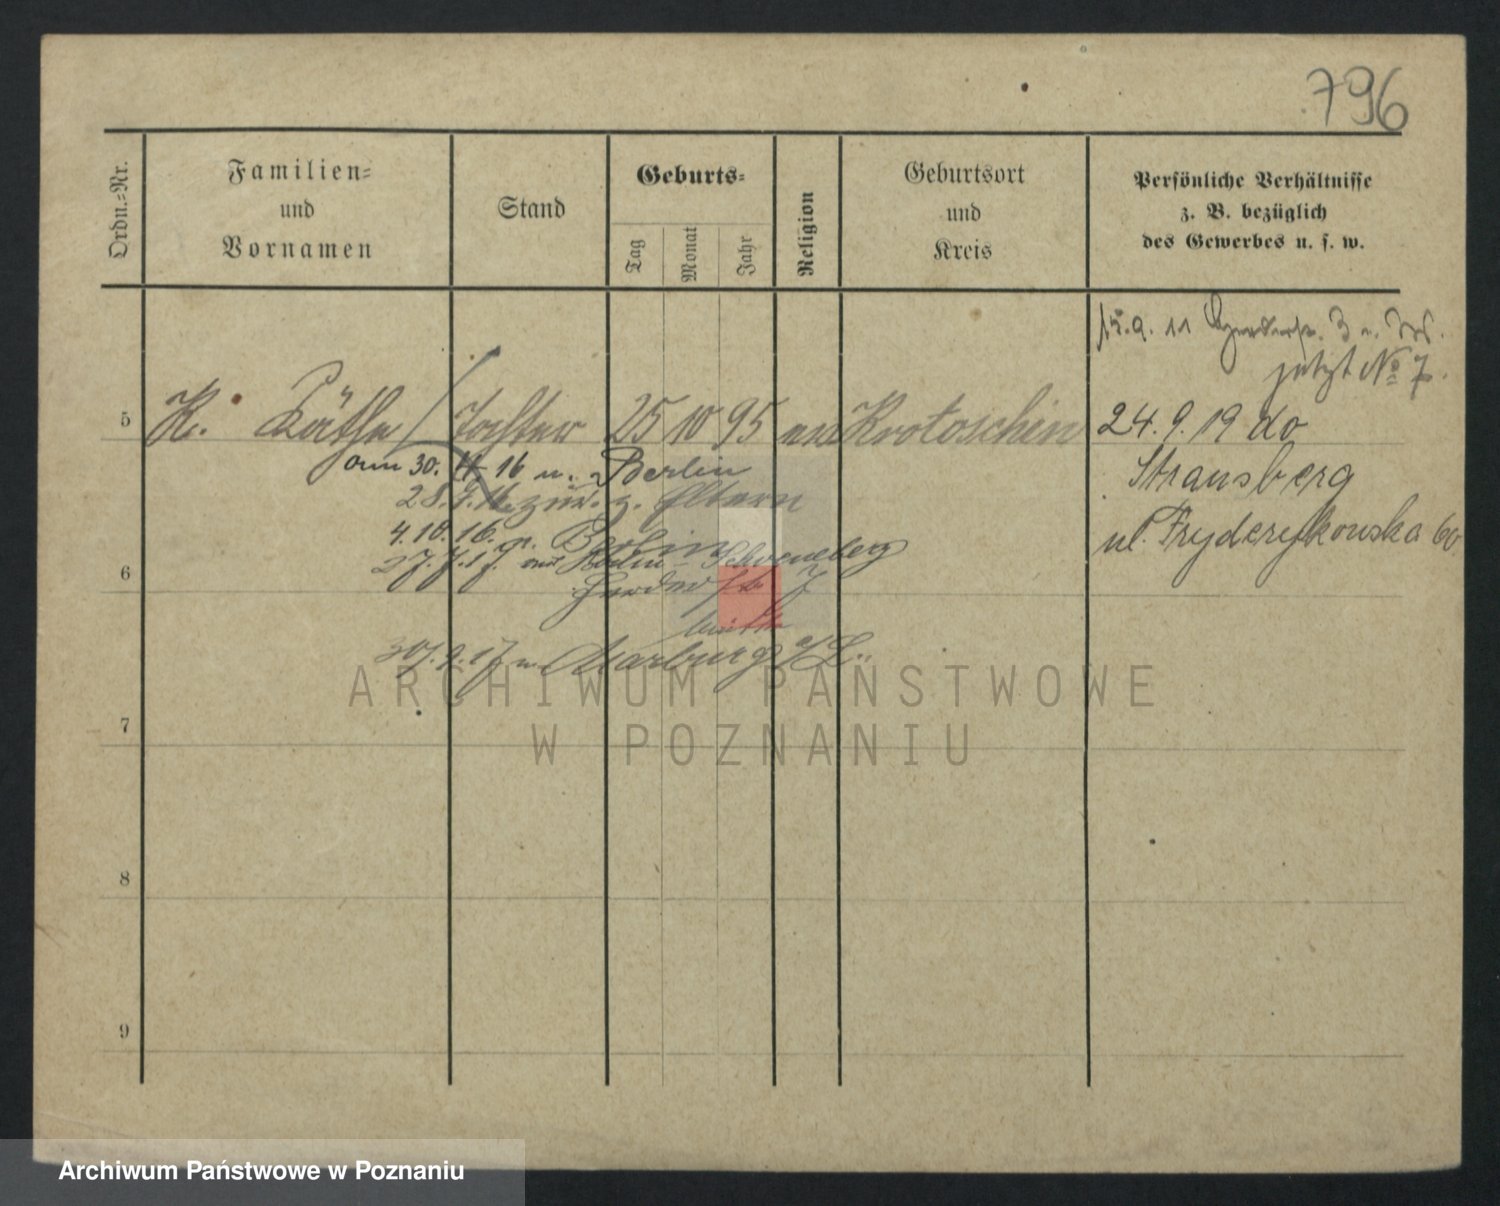 796
Ordn.-Nr.
Familien-
und
Vornamen
Stand
Geburts-
Tag
Monat
Jahr
Religion
Geburtsort
und
Kreis
Persönliche Verhältnisse
z. B. bezüglich
des Gewerbes u. s. w.
15.9.11 3
jetzt No 7.
5 K. Käthe Tochter 25 10 95 Krotoschin
24.9.19 do
Strausberg
ul. Fryderykowska
30. 16 n. Berlin
28.9.16 zur. z. Eltern
4.10.16. Berlin
27.7.17. aus Berlin-Schoeneberg
6
9.17 n Marburg a/L.
7
8
9
ARCHIWUM PAŃSTWOWE
W POZNANIU
Archiwum Państwowe w Poznaniu